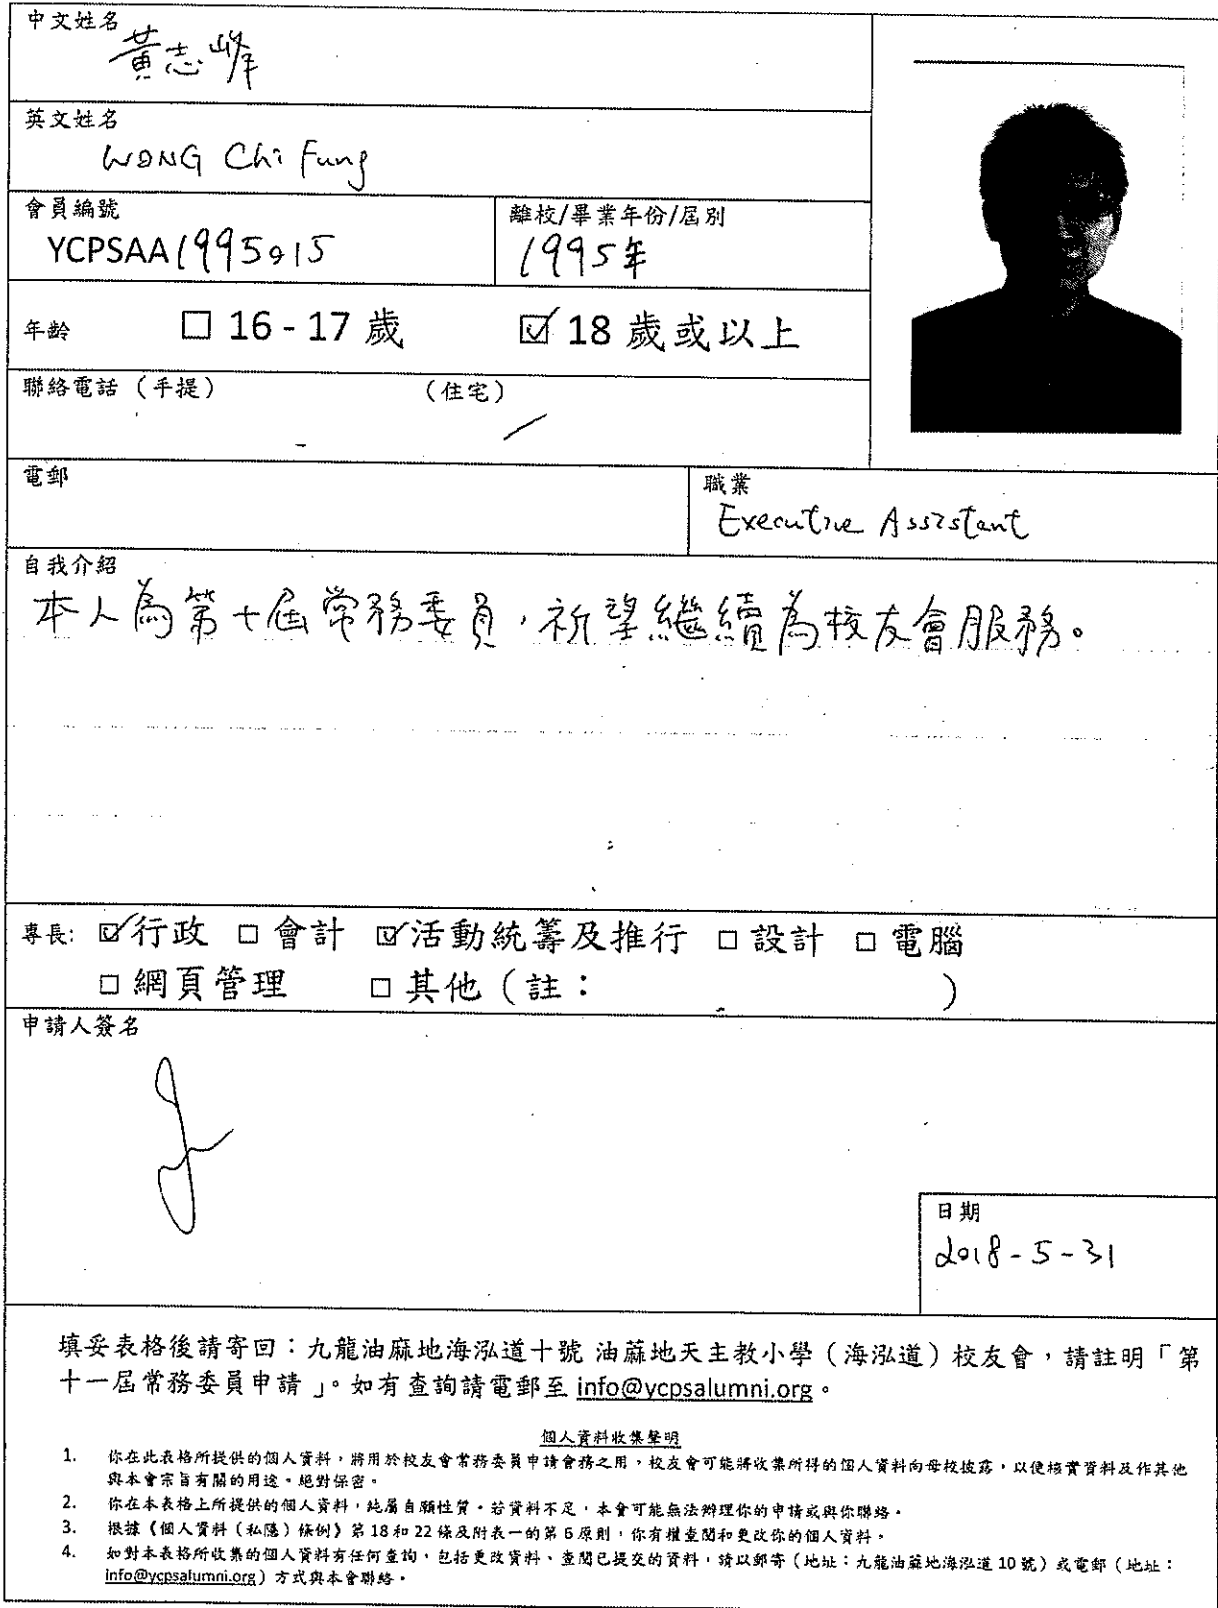 中文姓名
黃志峰
英文姓名
WONG Chi Fung
會員編號
YCPSAA1995015
離校/畢業年份/屆別
1995年
年齡 □ 16 - 17 歲 ☑ 18 歲或以上
聯絡電話（手提） （住宅）
電郵
職業
Executive Assistant
自我介紹
本人為第十屆常務委員，祈望繼續為校友會服務。
專長: ☑行政 □ 會計 ☑活動統籌及推行 □ 設計 □ 電腦
□ 網頁管理 □ 其他（註： ）
申請人簽名
日期
2018-5-31
填妥表格後請寄回：九龍油麻地海泓道十號 油蔴地天主教小學（海泓道）校友會，請註明「第
十一屆常務委員申請」。如有查詢請電郵至 info@ycpsalumni.org。
個人資料收集聲明
1. 你在此表格所提供的個人資料，將用於校友會常務委員申請會務之用，校友會可能將收集所得的個人資料向母校披露，以便核實資料及作其他
與本會宗旨有關的用途。絕對保密。
2. 你在本表格上所提供的個人資料，純屬自願性質。若資料不足，本會可能無法辦理你的申請或與你聯絡。
3. 根據《個人資料（私隱）條例》第 18 和 22 條及附表一的第 6 原則，你有權查閱和更改你的個人資料。
4. 如對本表格所收集的個人資料有任何查詢，包括更改資料、查閱已提交的資料，請以郵寄（地址：九龍油蔴地海泓道 10 號）或電郵（地址：
info@ycpsalumni.org）方式與本會聯絡。